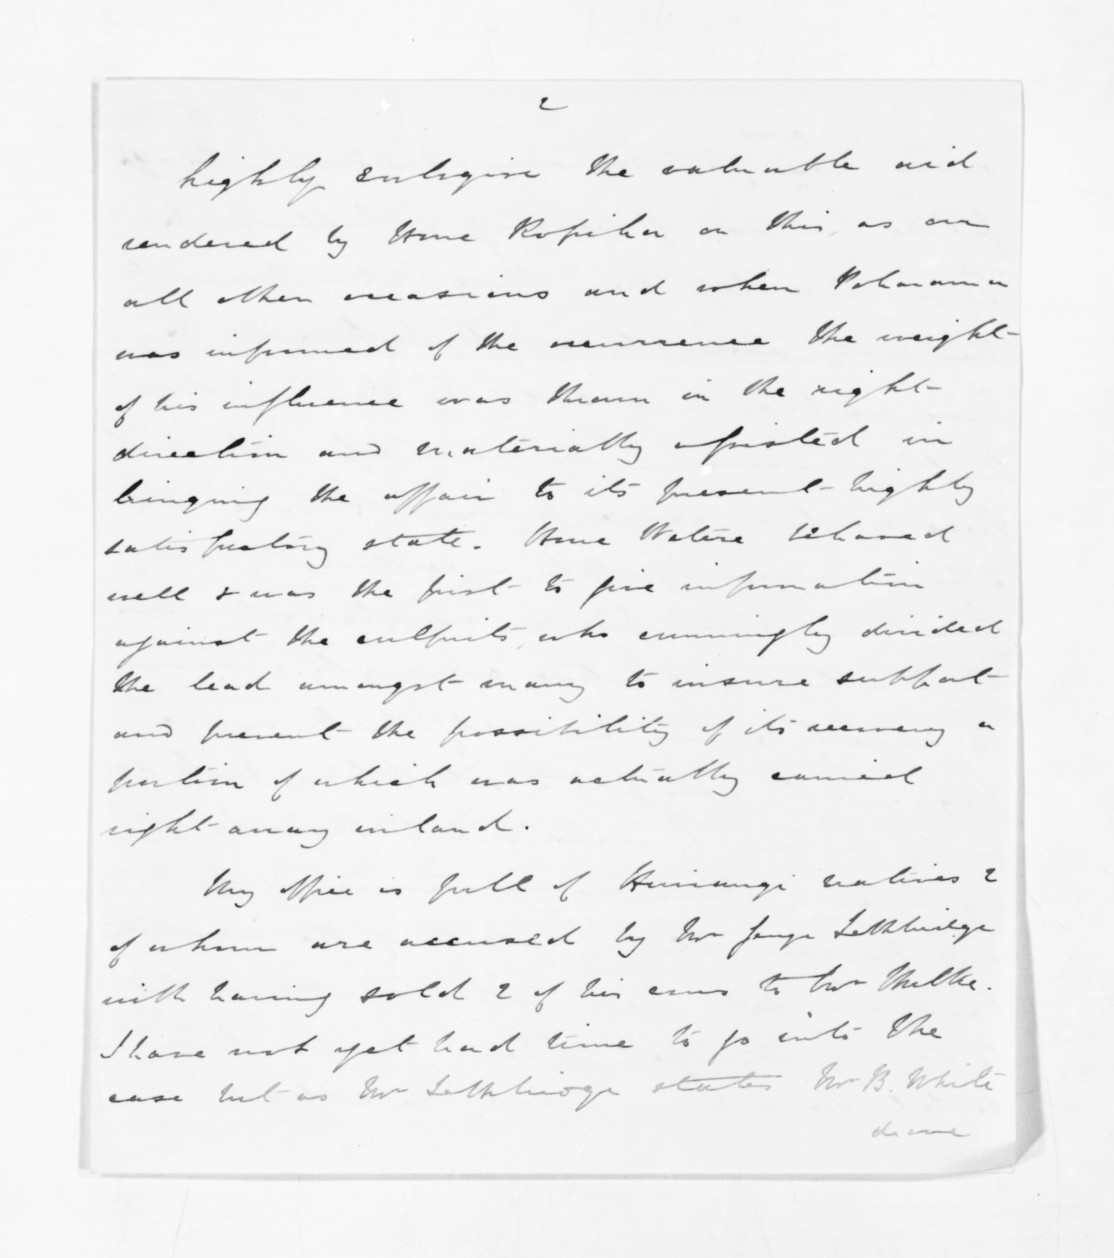 2
highly eulogise the valuable aid
rendered by Hone Ropiha on this, as on
all other occasions and when Poharama
was informed of the occurrence the weight
of his influence was thrown in the right
direction and materially assisted in
bringing the affair to its present highly
satisfactory state. Hone behaved
well & was the first to give information
against the culprits, who cunningly divided
the lead amongst many to insure support
and prevent the possibility of its recovery a
portion of which was actually carried
right away inland.
My office is full of Huirangi natives 2
of whom are accused by Mr George Lethbridge
with having sold 2 of his cows to Mr
I have not yet had time to go into the
case but as Mr Lethbridge states Mr B. White